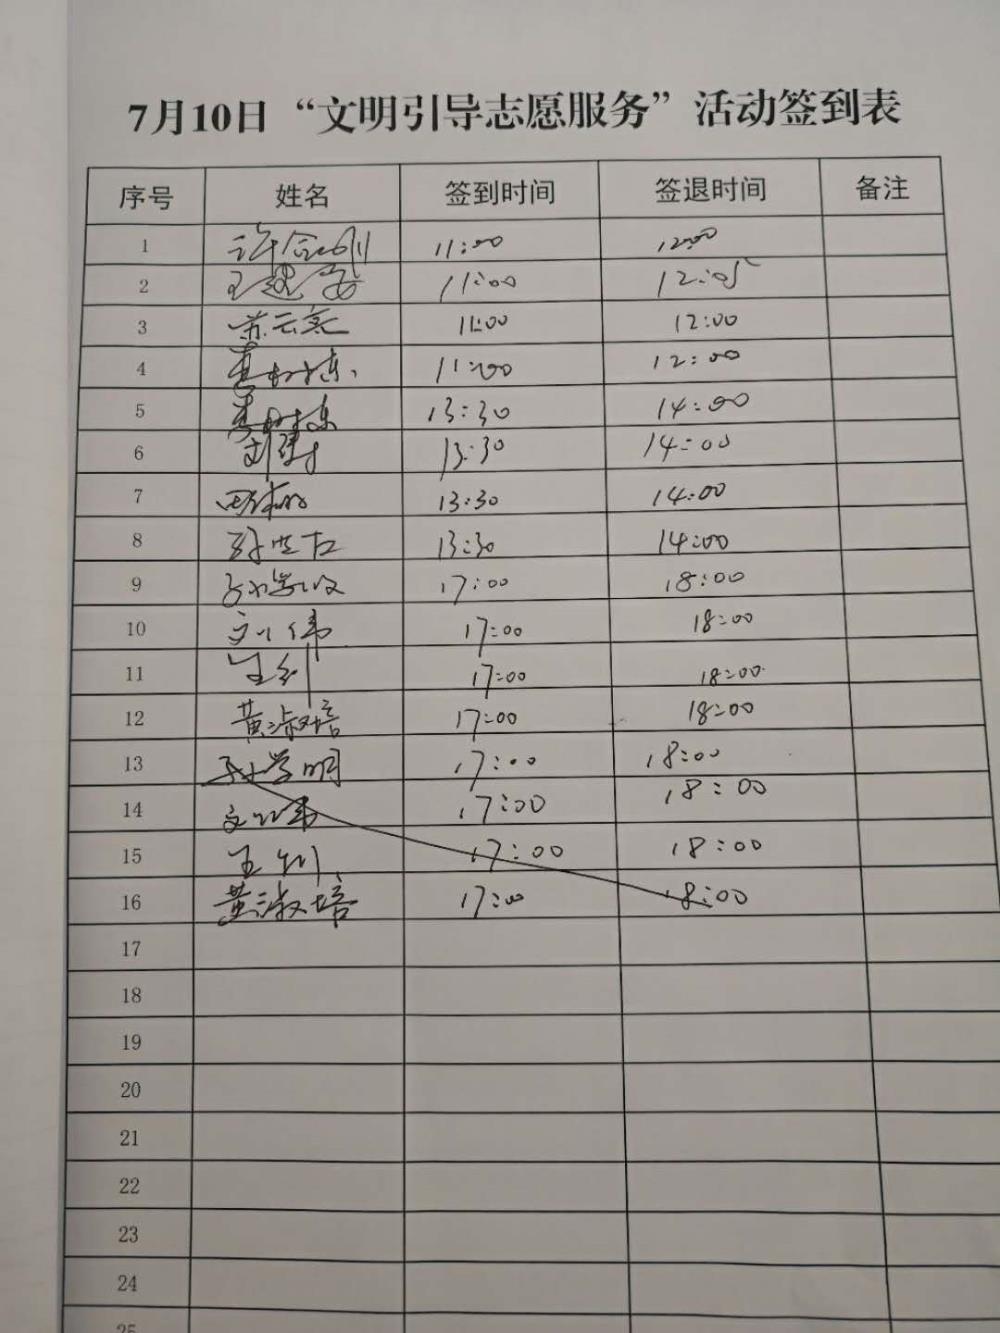 7月10日“文明引导志愿服务”活动签到表
序号 姓名 签到时间 签退时间 备注
1 11:00 12:00
2 11:00 12:05
3 11:00 12:00
4 11:00 12:00
5 13:30 14:00
6 13:30 14:00
7 13:30 14:00
8 13:30 14:00
9 17:00 18:00
10 刘伟 17:00 18:00
11 王钊 17:00 18:00
12 黄淑培 17:00 18:00
13 孙学明 17:00 18:00
14 刘伟 17:00 18:00
15 王钊 17:00 18:00
16 黄淑培 17:00 18:00
17
18
19
20
21
22
23
24
25